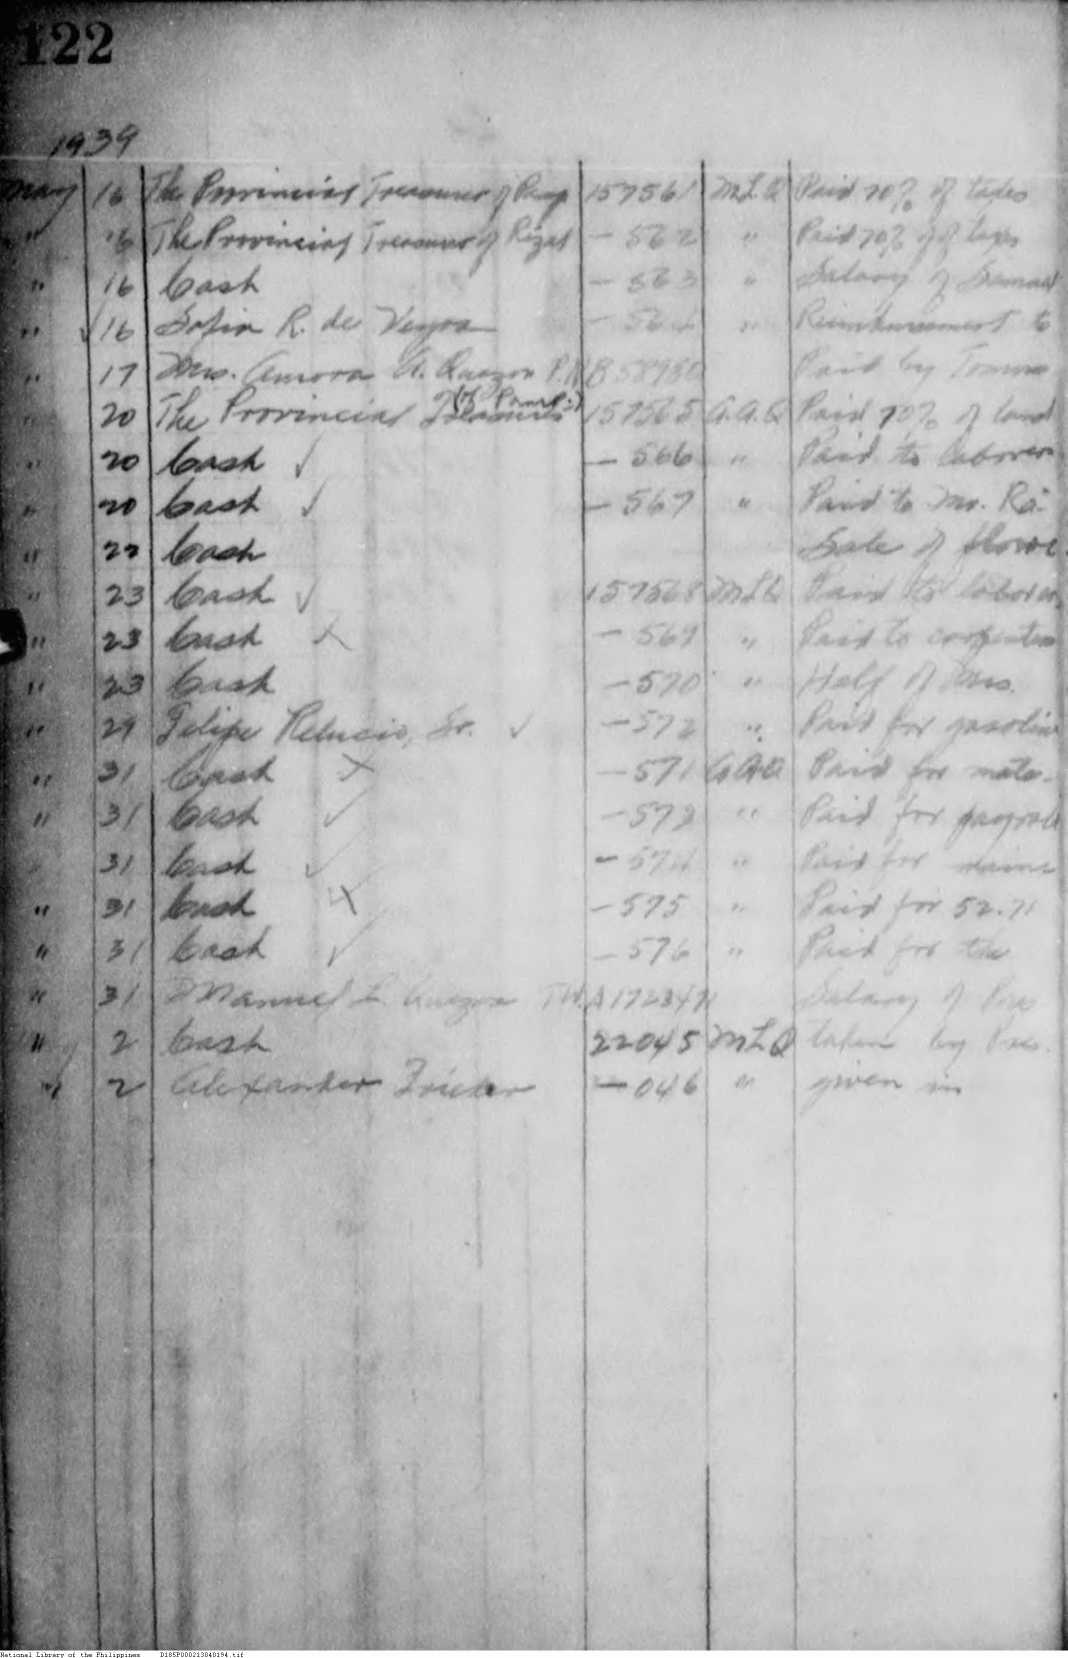 122
1939
May 16 The Provincial Treasurer of Pamp 157561 MLQ Paid 70% of taxes
" 16 The Provincial Treasurer of Rizal - 562 " Paid 70% of taxes
" 16 Cash - 563 " Salary of
" ✓ 16 Sofia R. de Veyra - 564 " Reimbursement to
" 17 Mrs. Aurora A. Quezon P.N.B Paid by
" 20 The Provincial Treasurer (of Pamp.) 157565 A.A.Q Paid 70% of land
" 20 Cash ✓ - 566 " Paid to laborers
" 20 Cash ✓ - 567 " Paid to Mr. Ra-
" 22 Cash Sale of
" 23 Cash ✓ 157568 MLQ Paid to laborers
" 23 Cash X - 569 " Paid to carpenters
" 23 Cash - 570 " Half of Mrs.
" 29 Felipe Relucio, Sr. ✓ - 572 " Paid for gasoline
" 31 Cash X - 571 A.A.Q Paid for mate-
" 31 Cash ✓ - 573 " Paid for payroll
31 Cash ✓ - 574 " Paid for
" 31 Cash X - 575 " Paid for 52.71
" 31 Cash ✓ - 576 " Paid for the
" 31 Manuel L. Quezon T.W.A 1723471 Salary of Pres
" 2 Cash 22045 MLQ taken by Pres.
" 2 Alexander - 046 " given in
National Library of the Philippines D185P000213040194.tif